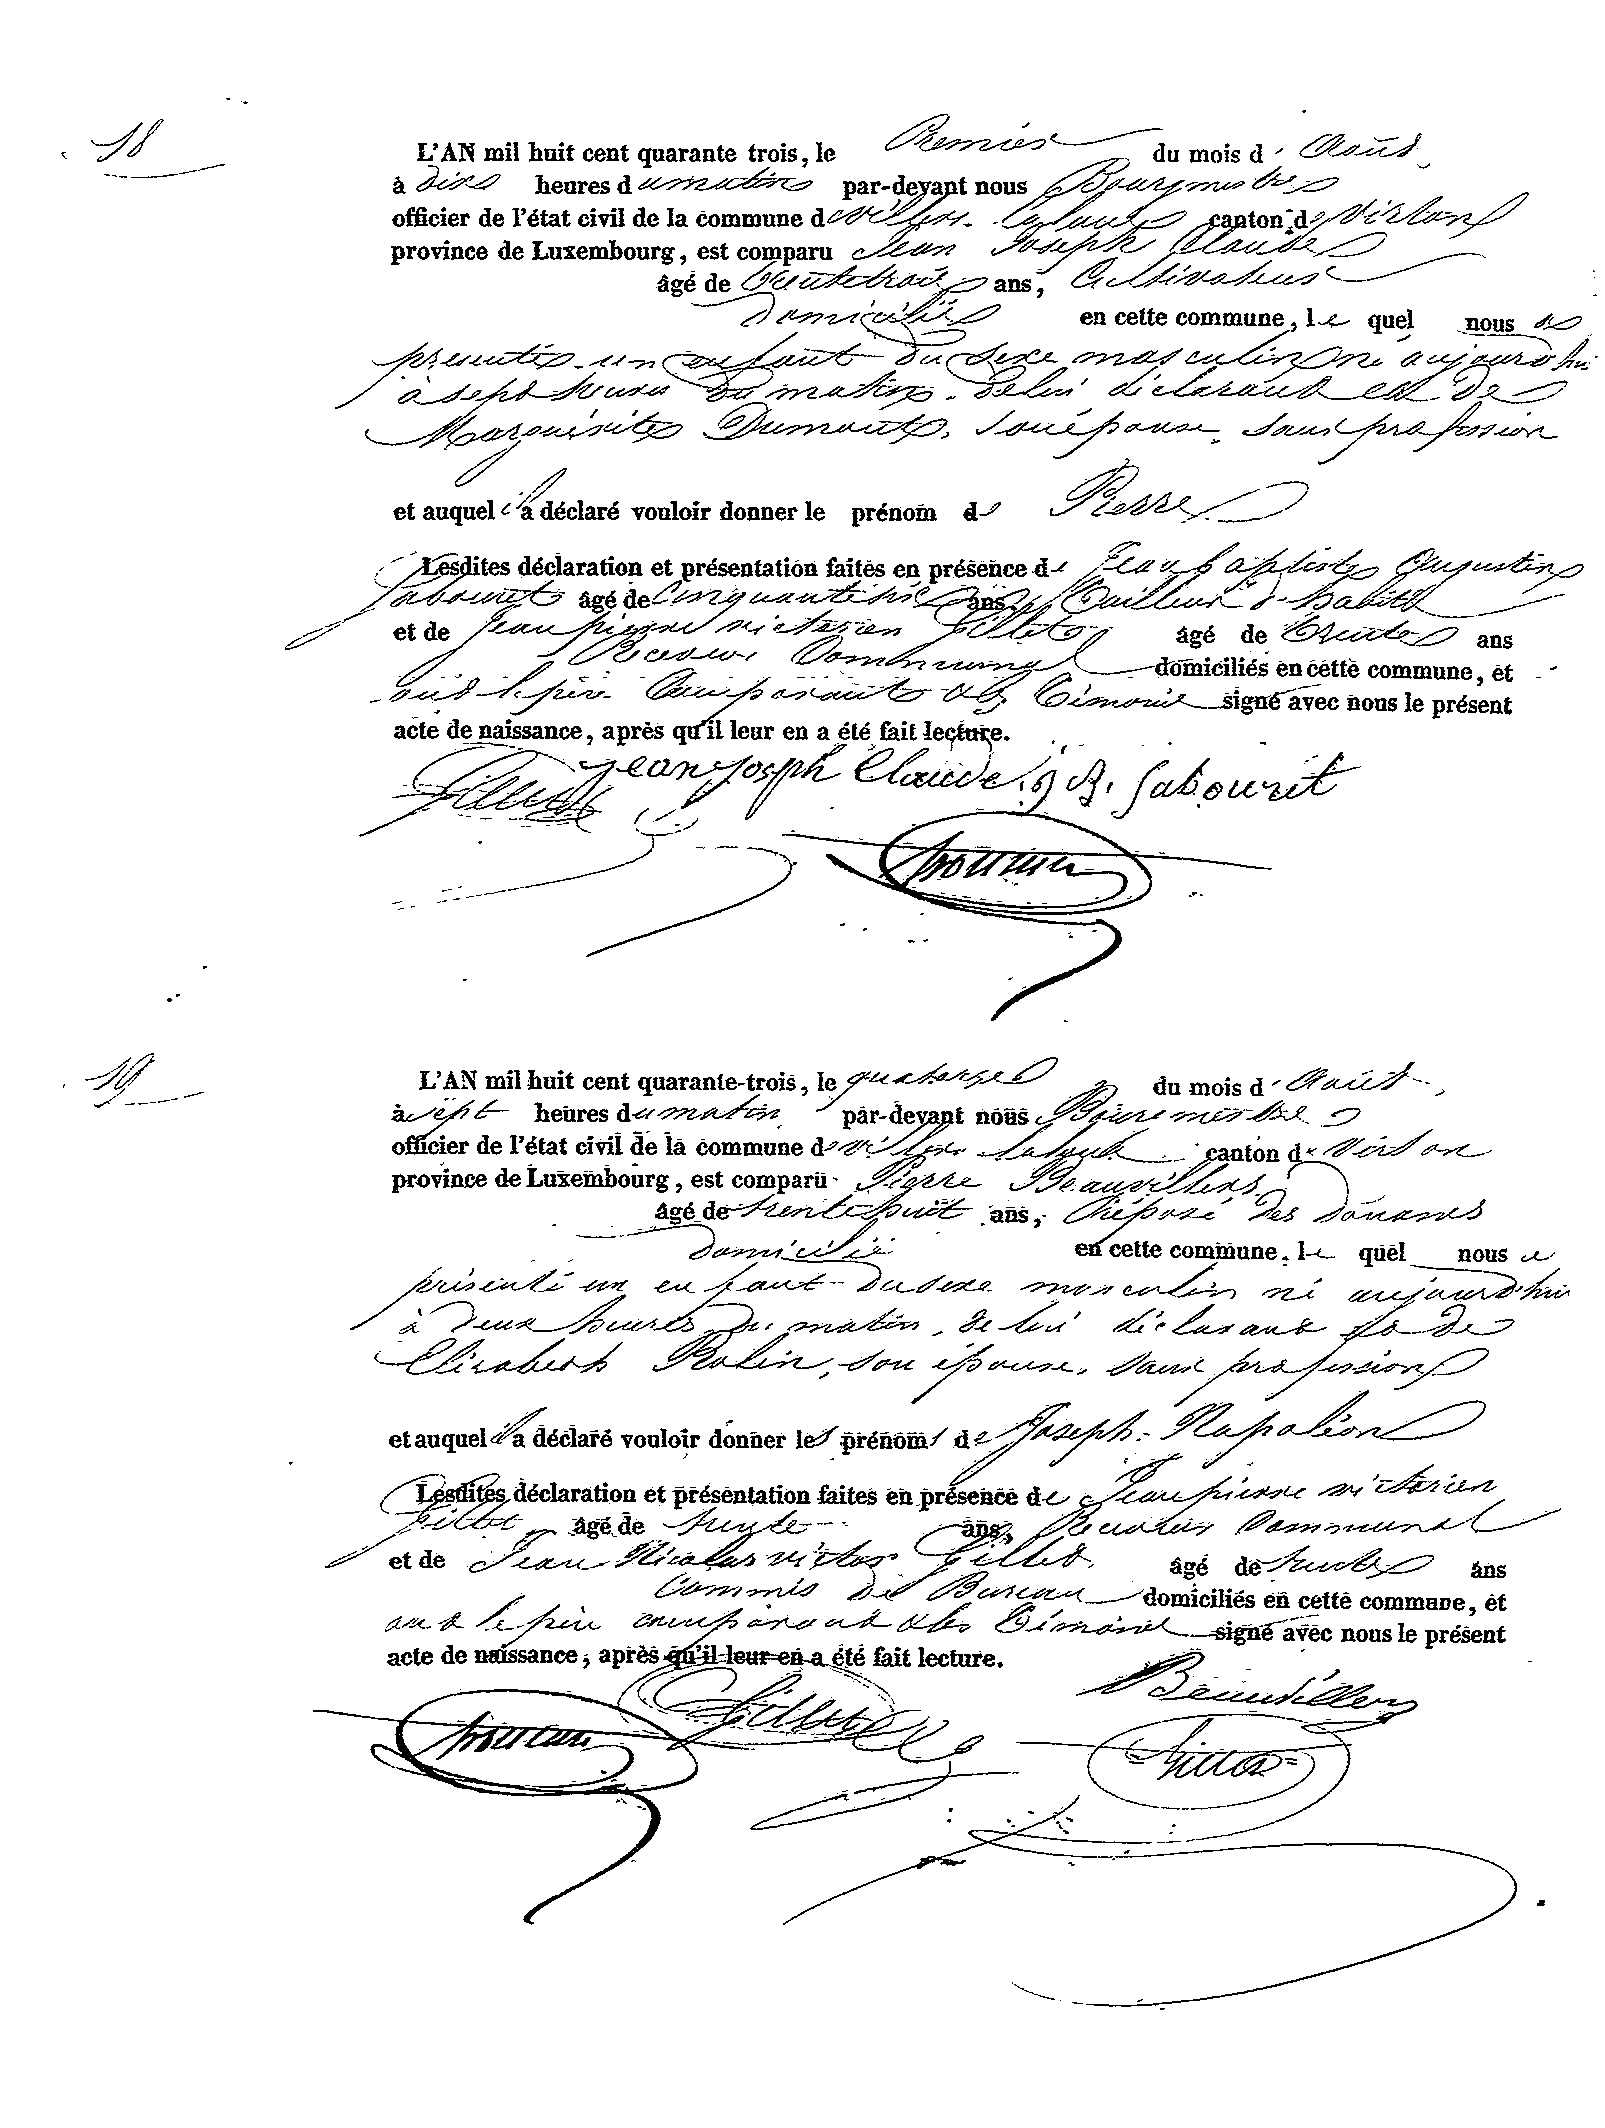 18
L'AN mil huit cent quarante trois, le Premier du mois d' Août
à dix heures du matin par-devant nous Bourgmestre
officier de l'état civil de la commune de villers-laloue canton de Virton
province de Luxembourg, est comparu Jean Joseph Claude
âgé de trente trois ans, Cultivateur
domicilié en cette commune, le quel nous a
presenté un enfant du sexe masculin né aujourd'hui
à sept heures du matin, de lui déclarant et de
Marguérite Dumont, son épouse, sans profession
et auquel il a déclaré vouloir donner le prénom de Pierre
Lesdites déclaration et présentation faites en présence de Jean baptiste Augustin
Sabouret âgé de Cinquante six ans, Tailleur d'habits
et de Jean pierre victorien Gillet âgé de trente ans
Receveur Communal domiciliés en cette commune, et
ont le père Comparant et les témoins signé avec nous le présent
acte de naissance, après qu'il leur en a été fait lecture.
jean joseph Claude j B. Sabourit
19
L'AN mil huit cent quarante-trois, le quatorze du mois d' Août
à sept heures du matin par-devant nous Bourgmestre
officier de l'état civil de la commune de villers laloue canton de Virton
province de Luxembourg, est comparu Pierre Beauvillers
âgé de trente huit ans, Préposé des douanes
domicilié en cette commune, le quel nous a
présenté un enfant du sexe masculin né aujourd'hui
à deux heures du matin, de lui déclarant et de
Elisabeth Robin, son épouse, sans profession
et auquel il a déclaré vouloir donner les prénoms de Joseph-Napoléon
Lesdites déclaration et présentation faites en présence de Jean pierre victorien
Gillet âgé de trente ans, Receveur Communal
et de Jean Nicolas victor Gillet âgé de trente ans
Commis de Bureau domiciliés en cette commune, et
ont le père comparant et les témoins signé avec nous le présent
acte de naissance, après qu'il leur en a été fait lecture.
Beauvillers